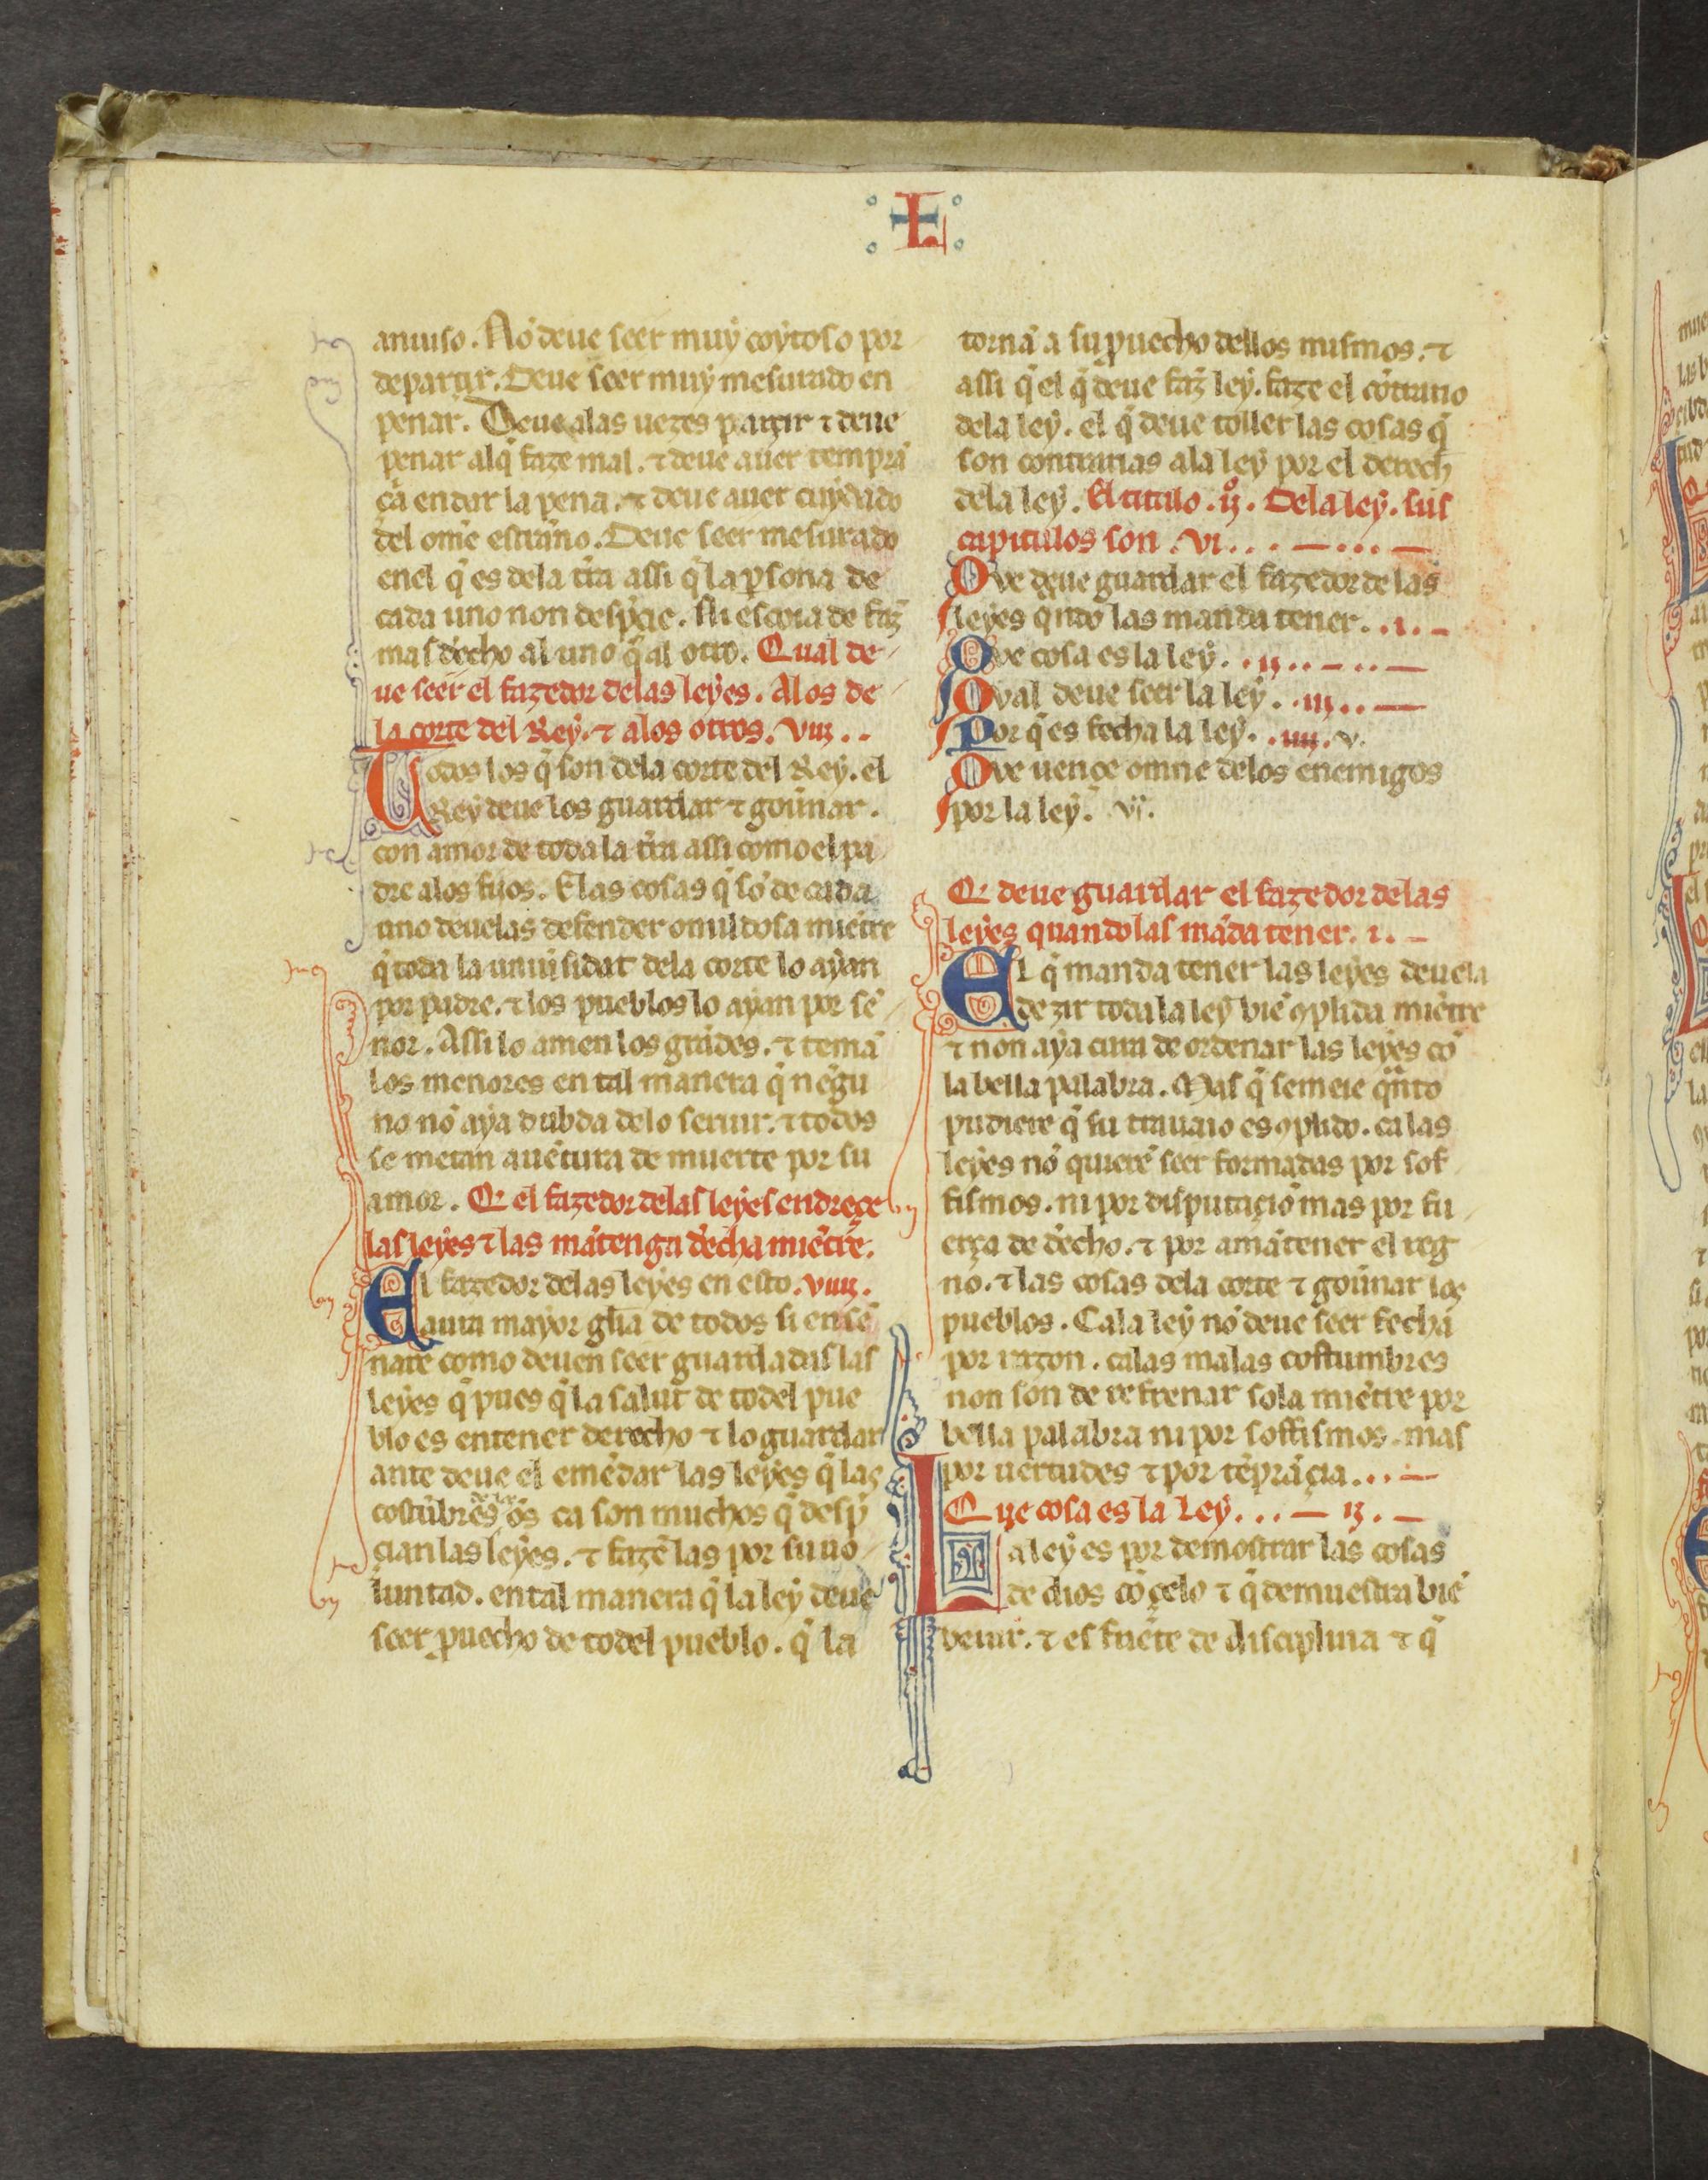 L
anuiso. Nõ deue seer muẏ coẏtoso por
departir. Deue seer muẏ mesurado en
penar. Deue alas uezes partir ⁊ deue
penar al q̃ faze mal. ⁊ deue auer temprã
çã en dar la pena. ⁊ deue auer cuẏdado
del om̃e estrãno. Deue seer mesurado
en el q̃ es dela tr̃ra assi q̃ la ꝑsona de
cada uno non desp̃cie. Ni escoia de faz̃
mas decho al uno q̃ al otro. Qual de
ue seer el fazedor delas leẏes. Alos de
la corte del Reẏ. ⁊ alos otros. Viij..
Todos los q̃ son dela corte del Reẏ. el
Reẏ deue los guardar ⁊ gou̾nar.
con amor de toda la tr̃ra assi como el pa
dre alos fijos. E las cosas q̃ sõ de cada
uno deuelas defender omildosa miẽtre
q̃ toda la uniu̾sidat dela corte lo aẏan
por padre. ⁊ los pueblos lo aẏan por sẽ
nor. Assi lo amen los grãdes. ⁊ temã
los menores en tal manera q̃ nẽgu
no nõ aẏa dubda delo seruir. ⁊ todos
se metan auẽtura de muerte por su
amor. Q̃ el fazedor delas leẏes endreçe
las leẏes ⁊ las mãtenga d̾echa miẽtre.
El fazedor delas leẏes en esto. viiij.
aura maẏor gl̃ia de todos si ensẽ
nare como deuen seer guardadas las
leẏes q̃ pues q̃ la salut de todel pue
blo es en tener derecho ⁊ lo guardar
ante deue el emẽdar las leẏes q̃ las
costũbres delos õs ca son muchos q̃ desp̃
cian las leẏes. ⁊ fazẽ las por su uo
luntad. en tal manera q̃ la leẏ deue
seer ꝓuecho de todel pueblo. q̃ la
tornã a su ꝓuecho dellos mismos. ⁊
assi q̃ el q̃ deue faz̃ leẏ. faze el cõtrario
dela leẏ. el q̃ deue toller las cosas q̃
son contrarias ala leẏ por el derech
dela leẏ. El titulo .ijº. Dela leẏ. sus
capitulos son .vi...—...—
Qve deue guardar el fazedor de las
leẏes qndo las manda tener. .i.—
Qve cosa es la leẏ. .ij..—..—
Qval deue seer la leẏ. .iij..—
Por q̃ es fecha la leẏ. .iiij. v.
Qve uençe omne delos enemigos
por la leẏ. vi.
Q̃ deue guardar el fazedor delas
leẏes quando las mãda tener. i.—
El q̃ manda tener las leẏes deuela
dezir toda la leẏ biẽ ꝯplida miẽtre
⁊ non aẏa cura de ordenar las leẏes cõ
la bella palabra. Mas q̃ semeie qñto
pudiere q̃ su trauaio es ꝯplido. ca las
leẏes nõ quierẽ seer formadas por sof
fismos. ni por disputaçiõ mas por fu
erça de d̾echo. ⁊ por a mãtener el reg
no. ⁊ las cosas dela corte ⁊ gou̾nar los
pueblos. Ca la leẏ nõ deue seer fecha
por razon. ca las malas costumbres
non son de refrenar sola miẽtre por
bella palabra ni por soffismos. mas
por uertudes ⁊ por tẽprãçia...—
Que cosa es la Leẏ...— ij.—
La leẏ es por demostrar las cosas
de dios cõ çelo ⁊ q̃ demuestra biẽ
beuir. ⁊ es fuẽte de disciplina ⁊ q̃